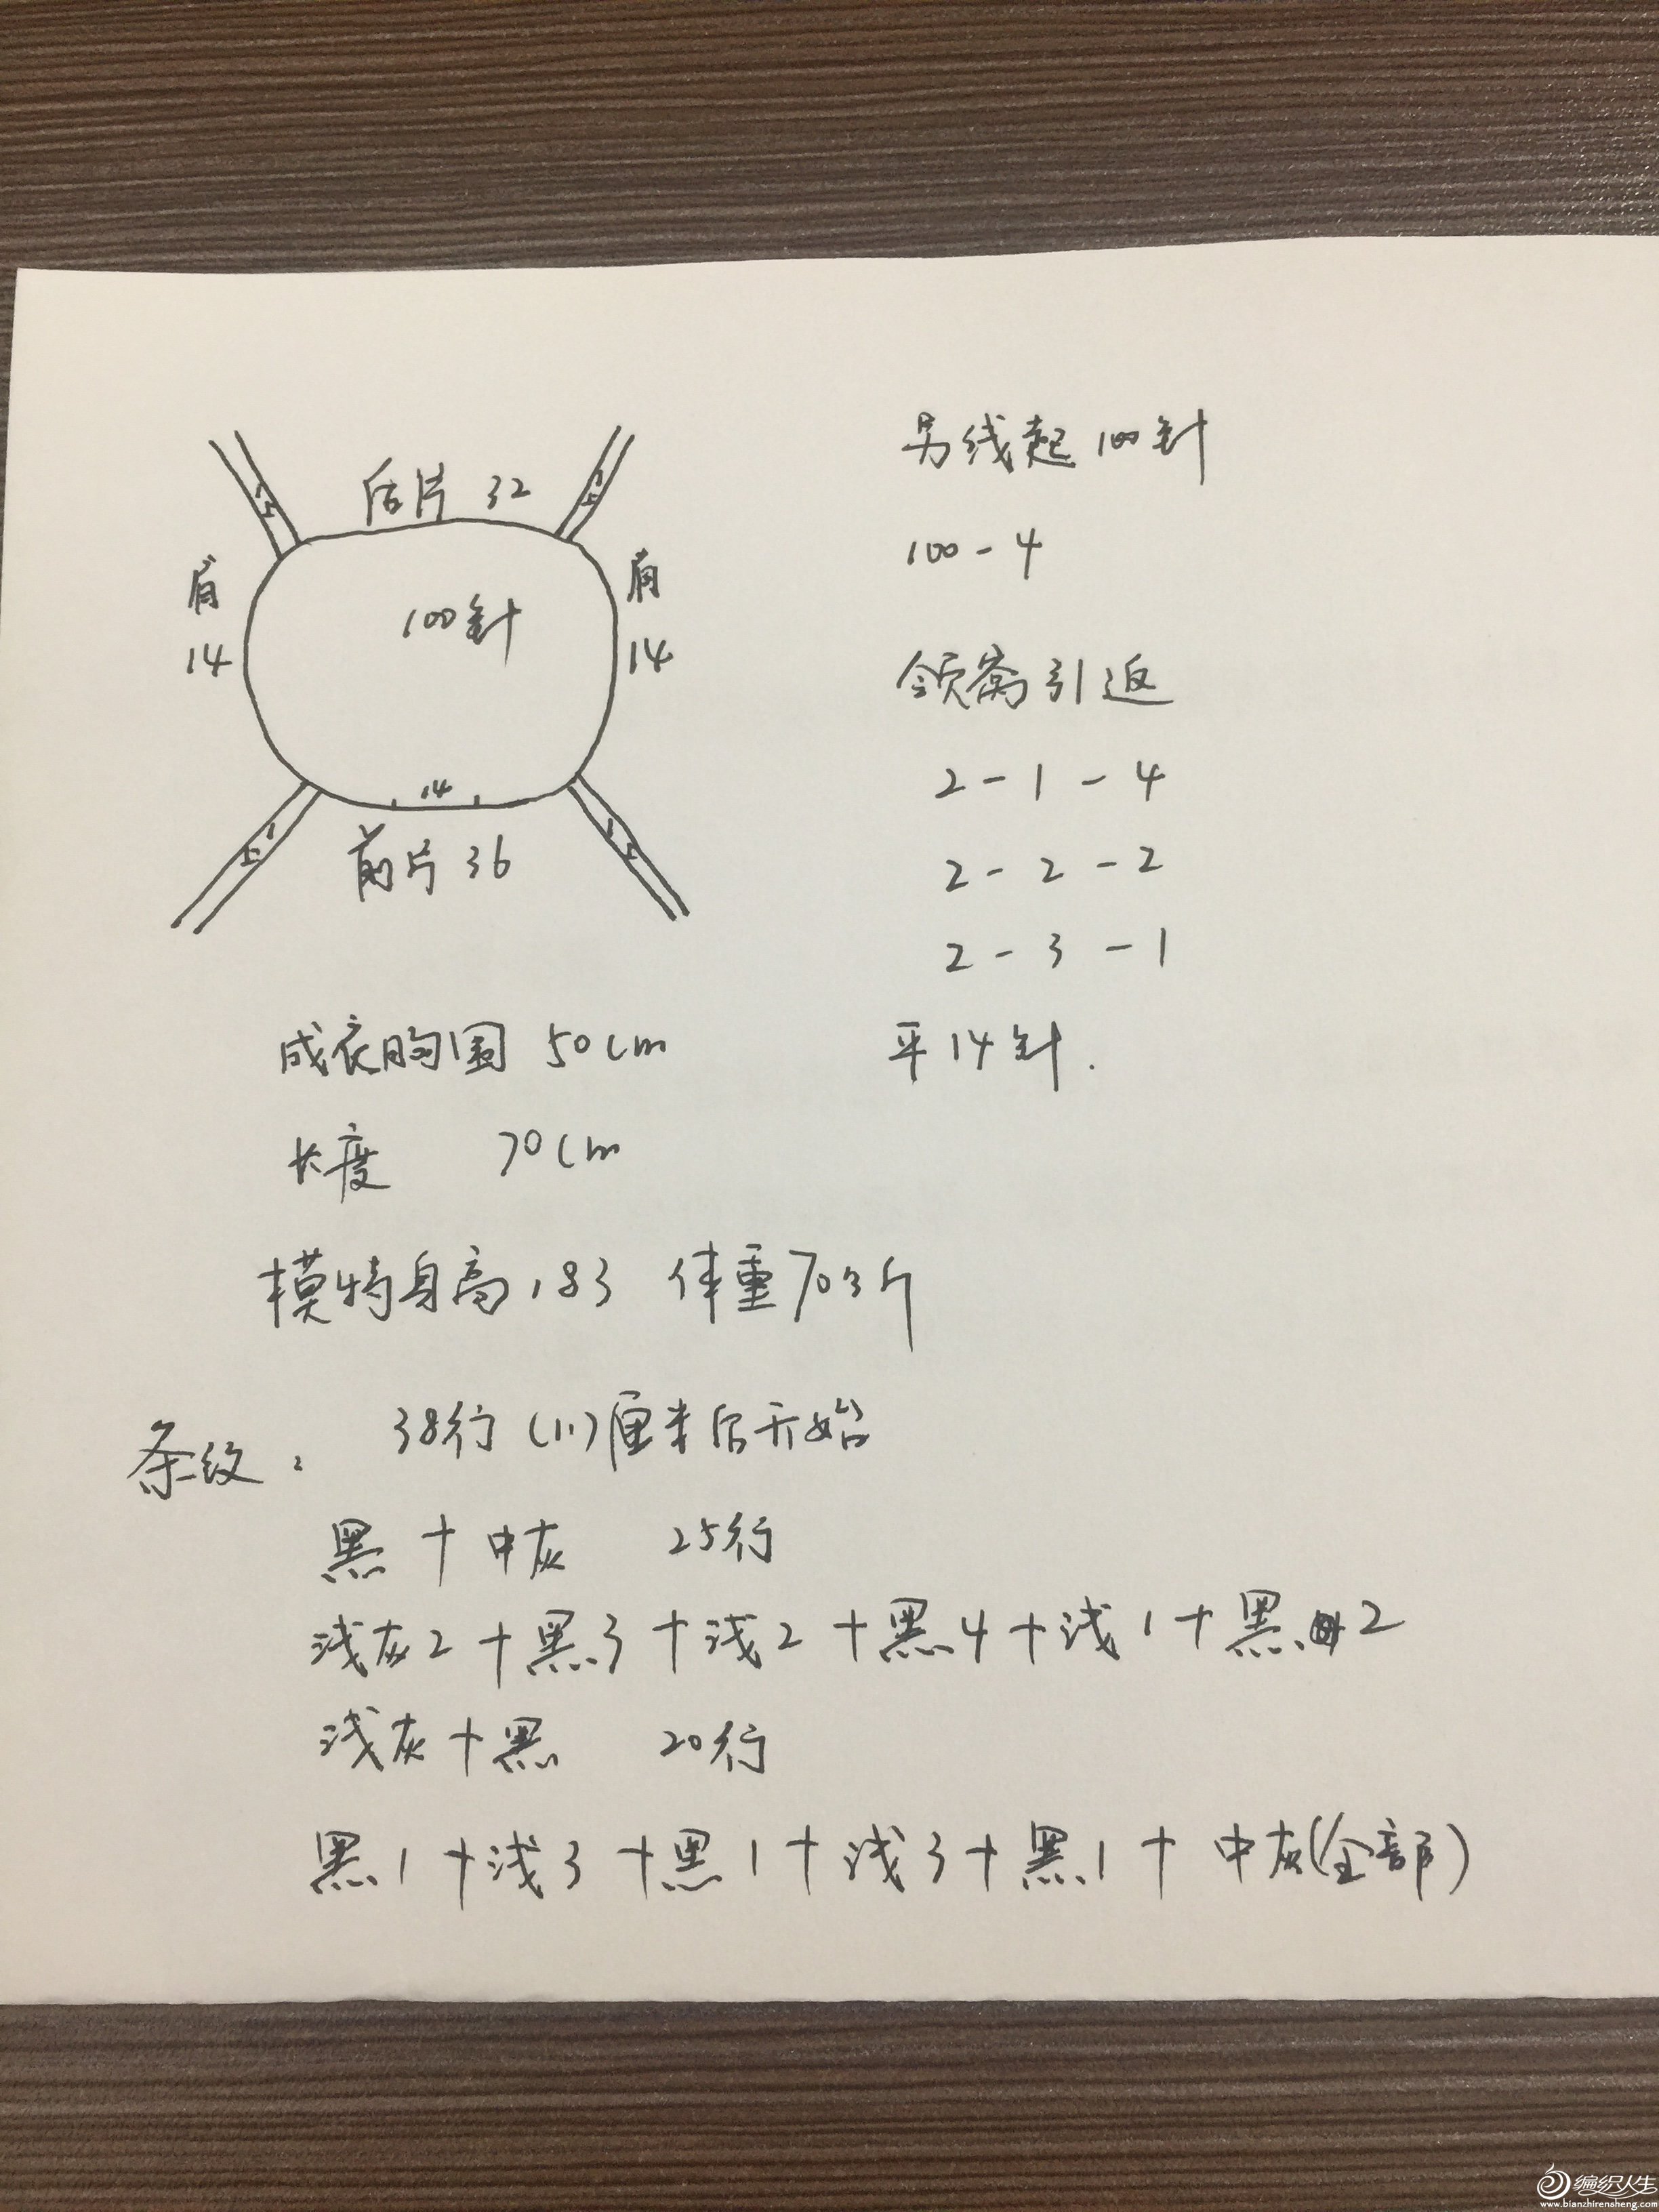 后片 32
肩
14
100针
肩
14
14
前片 36
另线起 100针
100 - 4
领窝引返
2 - 1 - 4
2 - 2 - 2
2 - 3 - 1
平14针.
成衣胸围 50cm
长度 70cm
模特身高183 体重70斤
条纹: 38行(11)厘米后开始
黑 + 中灰 25行
浅灰2 + 黑3 + 浅2 + 黑4 + 浅1 + 黑2
浅灰 + 黑 20行
黑1 + 浅3 + 黑1 + 浅3 + 黑1 + 中灰(全部)
编织人生
www.bianzhirensheng.com